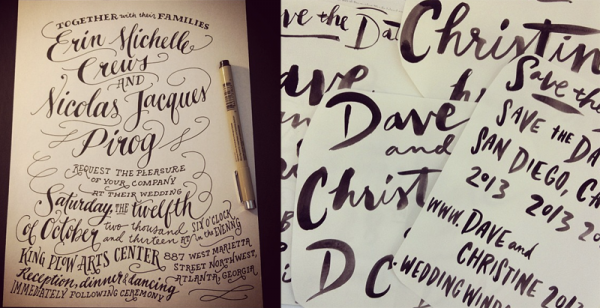 TOGETHER with their FAMILIES
Erin Michelle
Crews
AND
Nicolas Jacques
Pirog
REQUEST THE PLEASURE
OF YOUR COMPANY
AT THEIR WEDDING
Saturday, THE twelfth
of October two thousand and thirteen AT SIX O'CLOCK in the EVENING
KING PLOW ARTS CENTER 887 WEST MARIETTA
STREET NORTHWEST,
ATLANTA, GEORGIA
Reception, dinner & dancing
IMMEDIATELY FOLLOWING CEREMONY
ve the Dat
ave
Christin
Dave
and
Christ
D C
Save the
SAVE the DA
SAN DIEGO, CA
2013 2013 20
WWW. DAVE and
CHRISTINE
WEDDINGWIND 2013